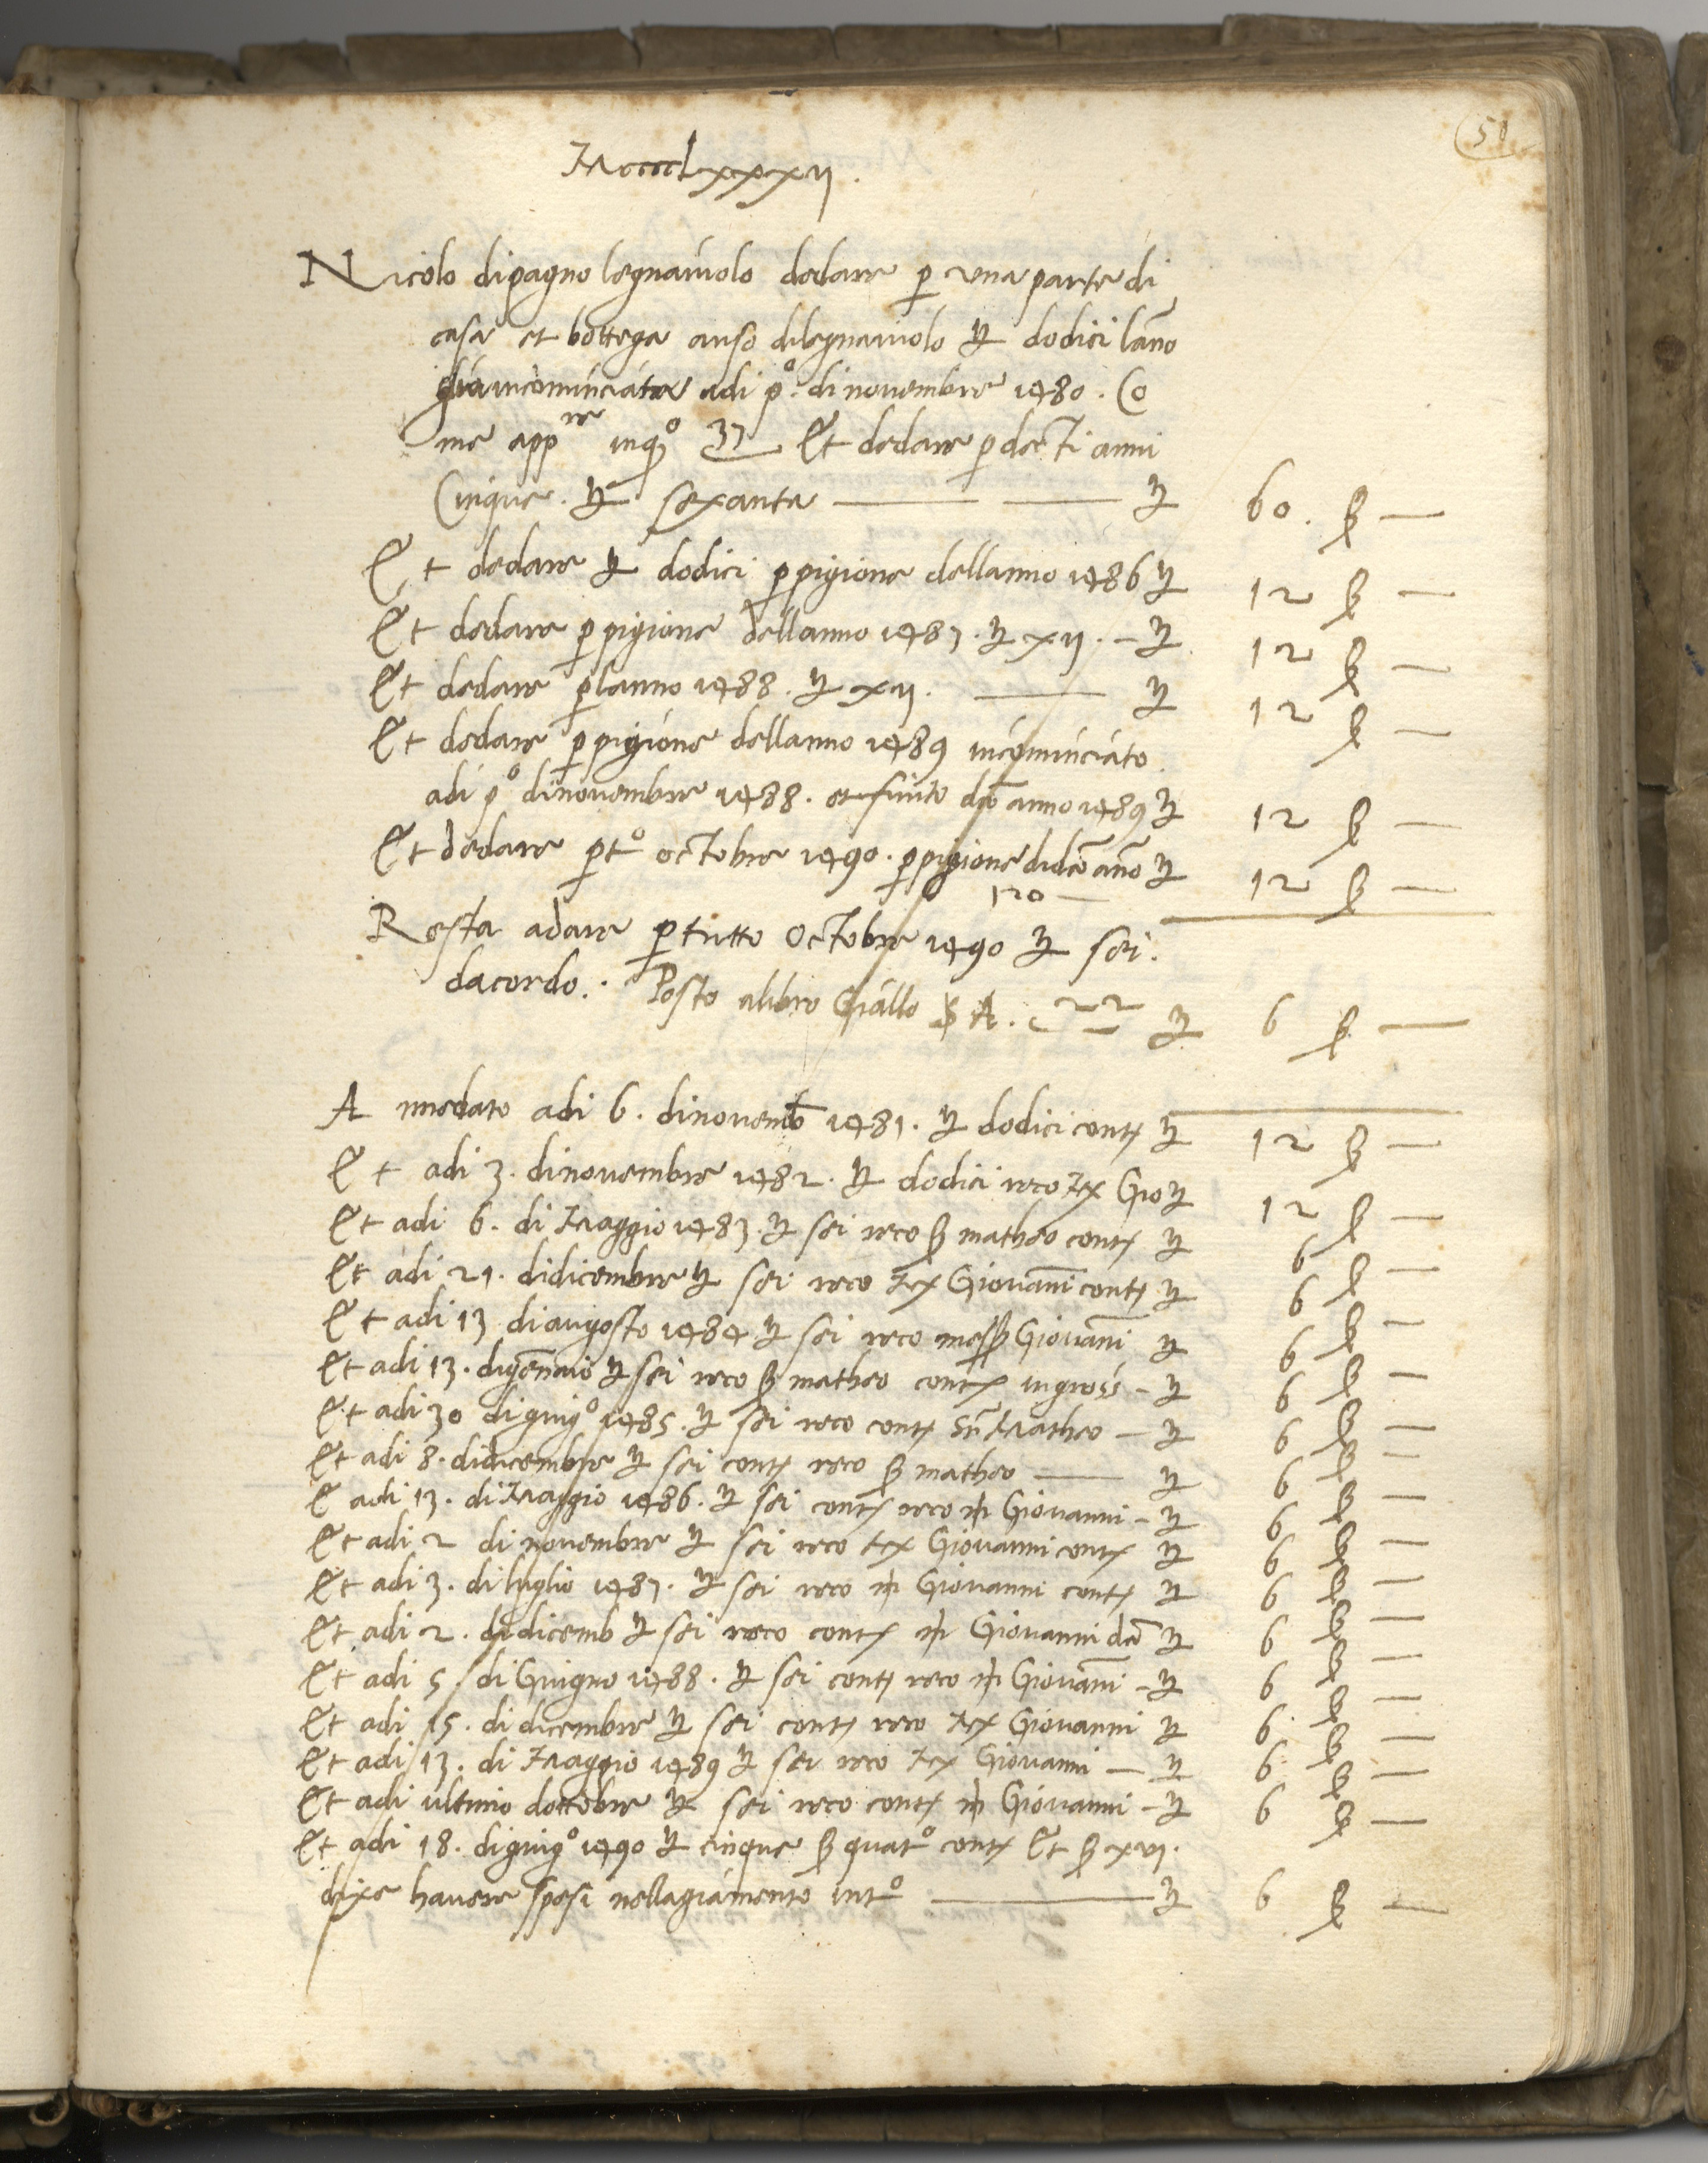 51
Mcccclxxxij.
Nicolo dipagno legnaiuolo dedare p una parte di
casa et bottega auso dilegnaiuolo ₶ dodici lāno
gia incominciata adi p°. di novembre 1480. Co
me appre inqo 37 Et dedare p decti anni
Cinque. ₶ sexanta — — ₶ 60. ß —
Et dedare ₶ dodici p pigione dellanno 1486 ₶ 12 ß —
Et dedare p pigione dellanno 1487. ₶ xij. - ₶ 12 ß —
Et dedare p lanno 1488. ₶ xij. — ₶ 12 ß —
Et dedare p pigione dellanno 1489 incominciato
adi p° dinovembre 1488. et finito dcō anno 1489 ₶ 12 ß —
Et dedare p t° octobre 1490. p pigione didcō āno ₶ 12 ß —
120 —
Resta adare p tutto Octobre 1490 ₶ sei.
dacordo. Posto alibro Giallo S A. 22 ₶ 6 ß —
A medato adi 6. dinovemb 1481. ₶ dodici cont ₶ 12 ß —
Et adi 3. dinovembre 1482. ₶ dodici reco Gio ₶ 12 ß —
Et adi 6. di Maggio 1483. ₶ sei reco ß matheo cont ₶ 6 ß —
Et adi 21. didicembre ₶ sei reco Giovāni cont ₶ 6 ß —
Et adi 13 diaugosto 1484 ₶ sei reco mesß Giovāni ₶ 6 ß —
Et adi 13. digēnaio ₶ sei reco ß matheo cont ingross - ₶ 6 ß —
Et adi 30 digiug° 1485. ₶ sei reco cont Matheo — ₶ 6 ß —
Et adi 8. didicembre ₶ sei cont reco ß matheo — ₶ 6 ß —
E adi 13. di Maggio 1486. ₶ sei cont reco m Giovanni - ₶ 6 ß —
Et adi 2 di novembre ₶ sei reco Giovanni cont ₶ 6 ß —
Et adi 3. di luglio 1487. ₶ sei reco m Giovanni cont ₶ 6 ß —
Et adi 2. didicemb ₶ sei reco cont m Giovanni dcō ₶ 6 ß —
Et adi 5 di Giugno 1488. ₶ sei cont reco m Giovāni - ₶ 6 ß —
Et adi 15. di dicembre ₶ sei cont reco Giovanni ₶ 6. ß —
Et adi 13. di Maggio 1489 ₶ sei reco Giovanni — ₶ 6. ß —
Et adi ultimo dottobre ₶ sei reco cont m Giovanni - ₶ 6 ß —
Et adi 18. digiug° 1490 ₶ cinque ß quat° cont Et ß xvj.
dixe havere spesi nellagiamento int° — ₶ 6 ß —